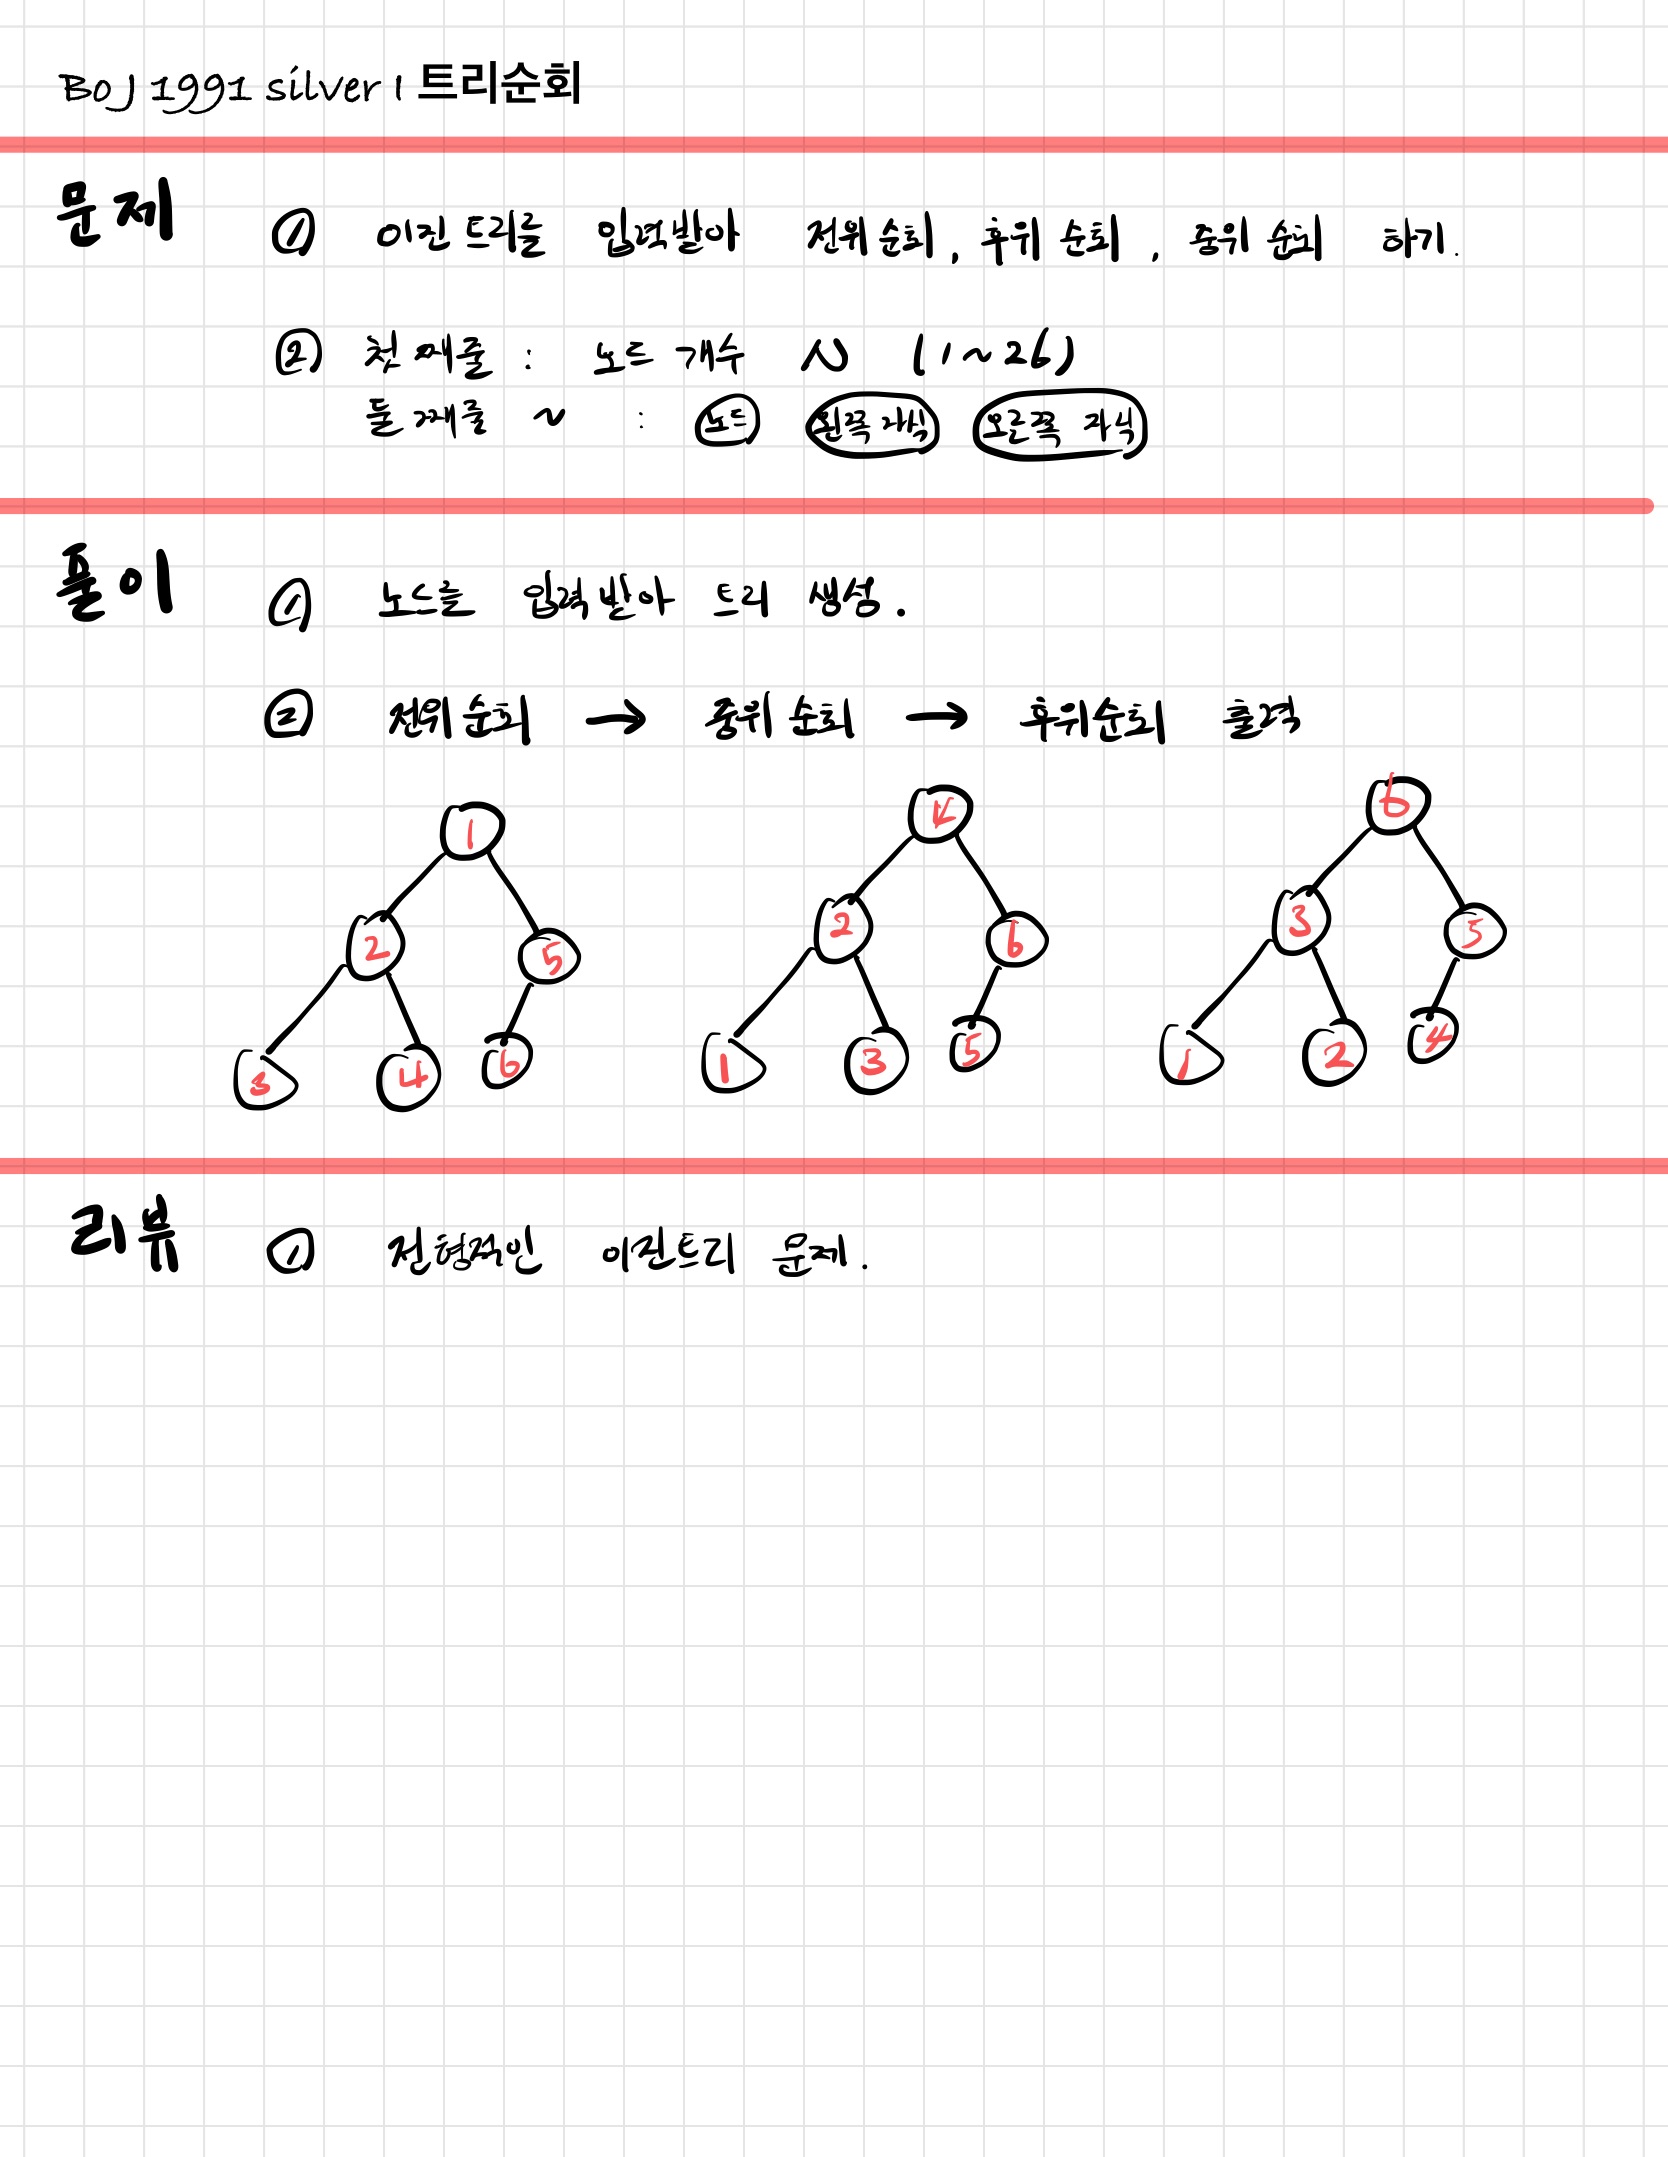 BOJ 1991 silver 1 트리순회
문제
① 이진트리를 입력받아 전위순회, 후위순회, 중위순회 하기.
② 첫째줄 : 노드 개수 N (1~26)
둘째줄 ~ : 노드 왼쪽 자식 오른쪽 자식
풀이
① 노드를 입력받아 트리 생성.
② 전위순회 → 중위순회 → 후위순회 출력
1 6
2 5 2 6 3 5
3 4 6 1 3 5 1 2 4
리뷰
① 전형적인 이진트리 문제.